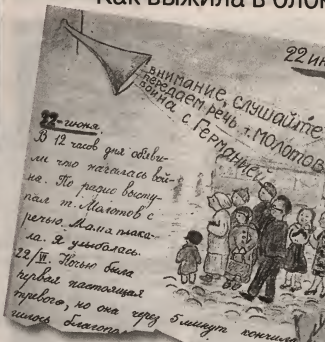 Как выжила в блок
22 ию
ВНИМАНИЕ СЛУШАЙТЕ
ПЕРЕДАЕМ РЕЧЬ т. МОЛОТОВ
ВОЙНА С ГЕРМАНИЕЙ
22-июня.
В 12 часов дня объяви-
ли что началась вой-
на. По радио высту-
пал т. Молотов с
речью. Мама плака-
ла. Я улыбалась.
22/VI. Ночью была
первая настоящая
тревога, но она через 5 минут кончи
лось благопо